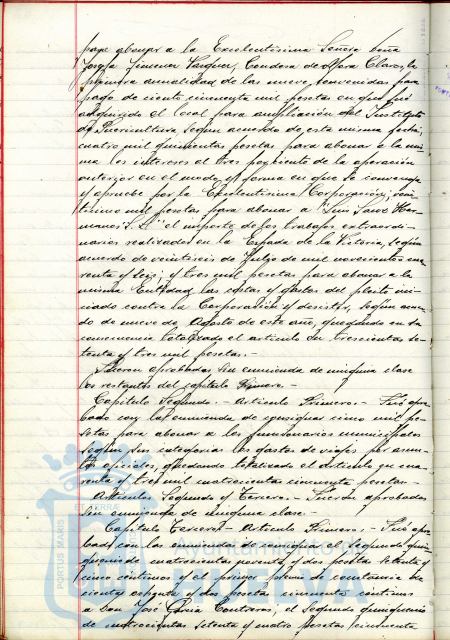 para abonar a la Excelentísima Señora doña
Josefa Jimenez Vazquez, Condesa de Mora Claros, la
primera anualidad de las nueve convenidas para
pago de ciento cincuenta mil pesetas en que fué
adquirido el local para ampliación del Instituto
de Puericultura, según acuerdo de esta misma fecha;
cuatro mil quinientas pesetas para abonar a la mis-
ma los intereses al tres por ciento de la operación
anterior en el modo y forma en que se convenga
y apruebe por la Excelentísima Corporación;
mil pesetas para abonar a "Luis Saus Her-
manos S.L." el importe de los trabajos extraordi-
narios realizados en la Espada de la Victoria, según
acuerdo de veintiseis de Julio de mil novecientos cua-
renta y seis; y tres mil pesetas para abonar a la
misma Entidad las costas y gastos del pleito ini-
ciado contra la Corporación y desistir, según acuer-
do de nueve de Agosto de este año, quedando en su
consecuencia totalizado el artículo en trescientas se-
tenta y tres mil pesetas.-
Fueron aprobados sin enmienda de ninguna clase
los restantes del capítulo Primero.-
Capítulo Segundo.- Artículo Primero.- Fué apro-
bado con la enmienda de consignar cinco mil pe-
setas para abonar a los funcionarios municipales
según su categoria los gastos de viajes por asun-
tos oficiales, quedando totalizado el artículo en cua-
renta y tres mil cuatrocientas cincuenta pesetas.-
Artículos Segundo y Tercero.- Fueron aprobados
sin enmienda de ninguna clase.-
Capítulo Tercero.- Artículo Primero.- Fué apro-
bado con las enmiendas de consignar el segundo quin-
quenio de cuatrocientas noventa y dos pesetas setenta y
cinco céntimos y el primer plus de constancia de
cientas cincuenta y dos pesetas cincuenta céntimos
a Don José Maria Contreras, el segundo quinquenio
de cuatrocientas setenta y cuatro pesetas cincuenta
PORTUS MARIS ET TERRAE
Ayuntamiento de
HUELVA